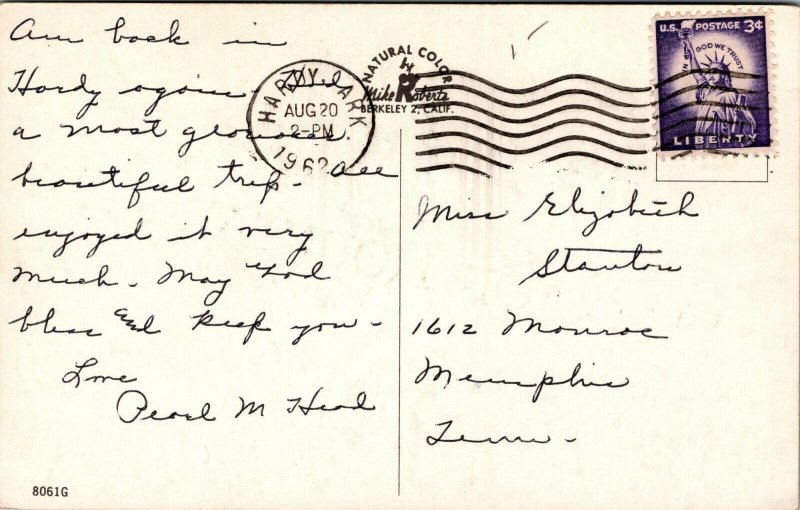 Am back in
Hardy again -
a most glorious
beautiful trip - all
enjoyed it very
much - May God
bless and keep you -
Love
Pearl M Head
8061G
HARDY, ARK
AUG 20
2-PM
1962
NATURAL COLOR
by
Mike Roberts
BERKELEY 2, CALIF.
U.S. POSTAGE 3¢
IN GOD WE TRUST
LIBERTY
Miss Elizabeth
Stanton
1612 Monroe
Memphis
Tenn -